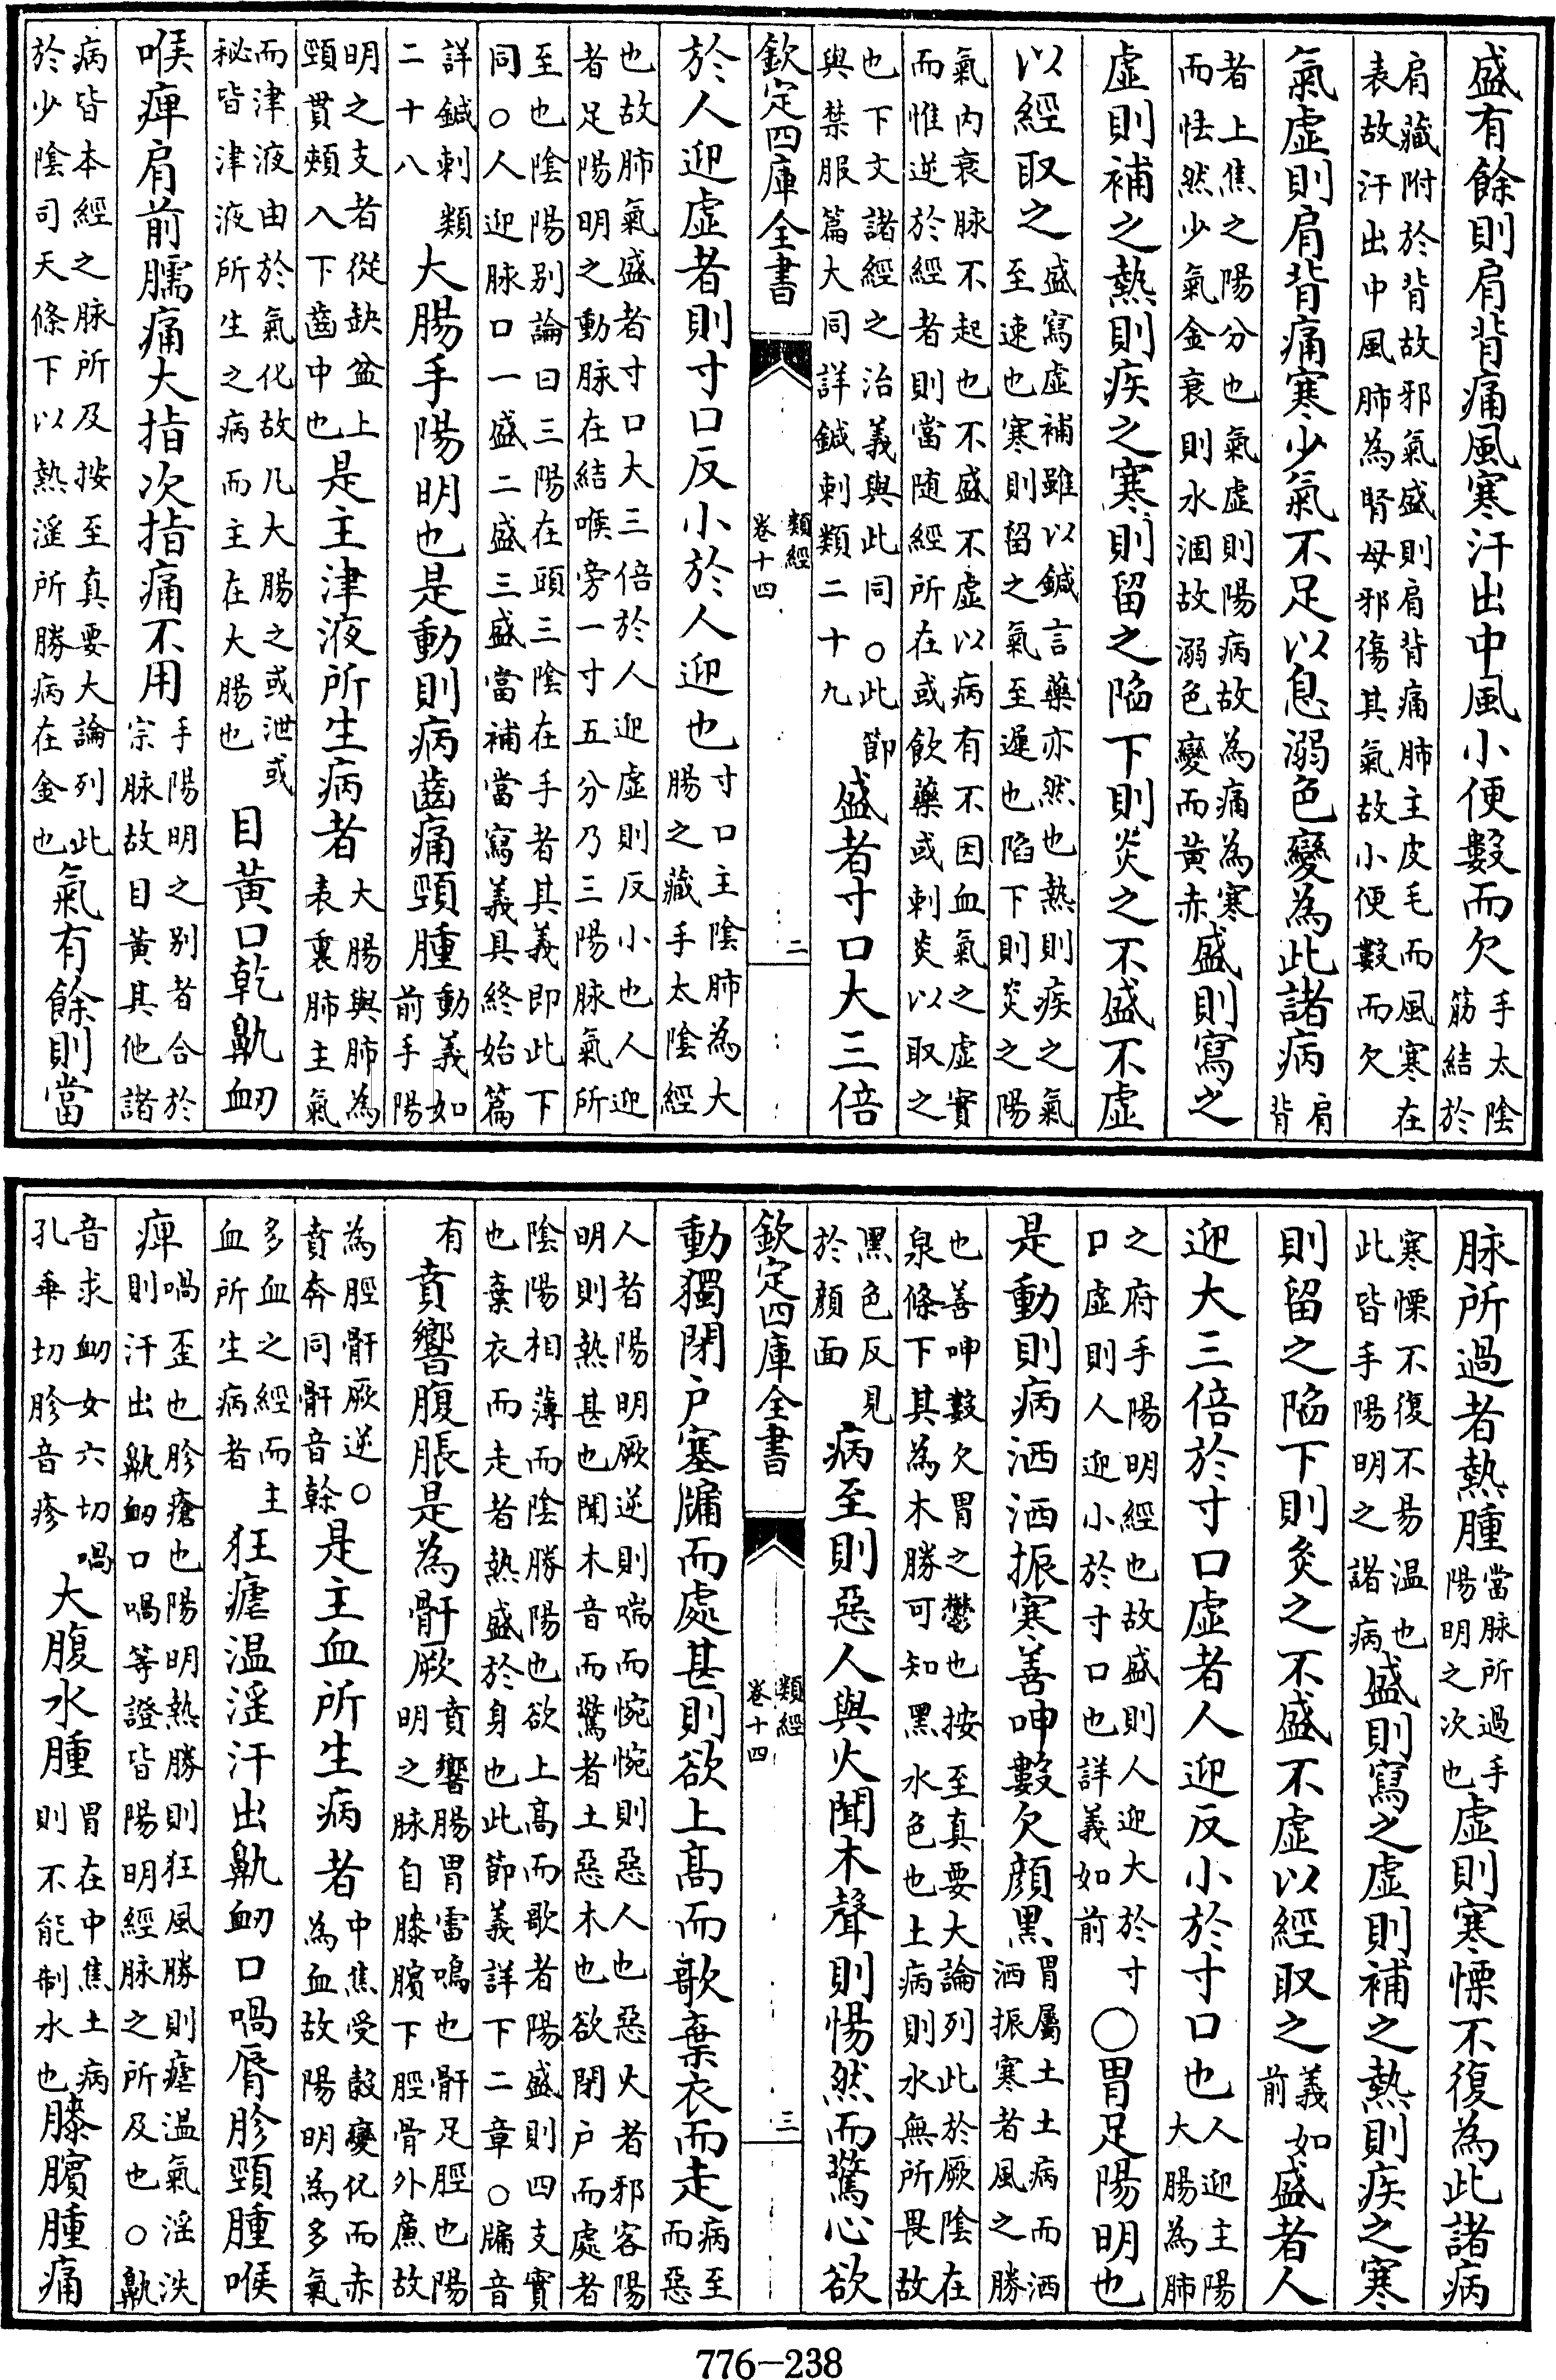 盛有餘則肩背痛風寒汗出中風小便數而欠手太陰筋結於
肩藏附於背故邪氣盛則肩背痛肺主皮毛而風寒在表故汗出中風肺為腎母邪傷其氣故小便數而欠
氣虛則肩背痛寒少氣不足以息溺色變為此諸病肩背
者上焦之陽分也氣虛則陽病故為痛為寒而怯然少氣金衰則水涸故溺色變而黃赤盛則寫之
虛則補之熱則疾之寒則留之陷下則灸之不盛不虛
以經取之盛寫虛補雖以鍼言藥亦然也熱則疾之氣至速也寒則留之氣至遲也陷下則灸之陽
氣內衰脉不起也不盛不虛以病有不因血氣之虛實而惟逆於經者則當随經所在或飲藥或刺灸以取之
也下文諸經之治義與此同○此節與禁服篇大同詳鍼刺類二十九盛者寸口大三倍
欽定四庫全書 類經 卷十四 二
於人迎虛者則寸口反小於人迎也寸口主陰肺為大腸之藏手太陰經
也故肺氣盛者寸口大三倍於人迎虛則反小也人迎者足陽明之動脉在結喉旁一寸五分乃三陽脉氣所
至也陰陽别論曰三陽在頭三陰在手者其義即此下同○人迎脉口一盛二盛三盛當補當寫義具終始篇
詳鍼刺類二十八大腸手陽明也是動則病齒痛頸腫動義如前手陽
明之支者從缺盆上頸貫頰入下齒中也是主津液所生病者大腸與肺為表裏肺主氣
而津液由於氣化故凡大腸之或泄或秘皆津液所生之病而主在大腸也目黃口乾鼽衂
喉痺肩前臑痛大指次指痛不用手陽明之别者合於宗脉故目黃其他諸
病皆本經之脉所及按至真要大論列此於少陰司天條下以熱淫所勝病在金也氣有餘則當
脉所過者熱腫當脉所過手陽明之次也虛則寒慄不復為此諸病
寒慄不復不易温也此皆手陽明之諸病盛則寫之虛則補之熱則疾之寒
則留之陷下則灸之不盛不虛以經取之義如前盛者人
迎大三倍於寸口虛者人迎反小於寸口也人迎主陽大腸為肺
之府手陽明經也故盛則人迎大於寸口虛則人迎小於寸口也詳義如前○胃足陽明也
是動則病洒洒振寒善呻數欠顏黑胃屬土土病而洒洒振寒者風之勝
也善呻數欠胃之鬱也按至真要大論列此於厥陰在泉條下其為木勝可知黑水色也土病則水無所畏故
黑色反見於顏面病至則惡人與火聞木聲則惕然而驚心欲
欽定四庫全書 類經 卷十四 三
動獨閉户塞牖而處甚則欲上髙而歌棄衣而走病至而惡
人者陽明厥逆則喘而惋惋則惡人也惡火者邪客陽明則熱甚也聞木音而驚者土惡木也欲閉户而處者
陰陽相薄而陰勝陽也欲上髙而歌者陽盛則四支實也棄衣而走者熱盛於身也此節義詳下二章○牖音
有賁響腹脹是為骭厥賁響腸胃雷鳴也骭足脛也陽明之脉自膝臏下脛骨外廉故
為脛骭厥逆○賁奔同骭音榦是主血所生病者中焦受穀變化而赤為血故陽明為多氣
多血之經而主血所生病者狂瘧温淫汗出鼽衂口喎脣胗頸腫喉
痺喎歪也胗瘡也陽明熱勝則狂風勝則瘧温氣淫泆則汗出鼽衂口喎等證皆陽明經脉之所及也○鼽
音求衂女六切喎孔乖切胗音疹大腹水腫胃在中焦土病則不能制水也膝臏腫痛
776-238